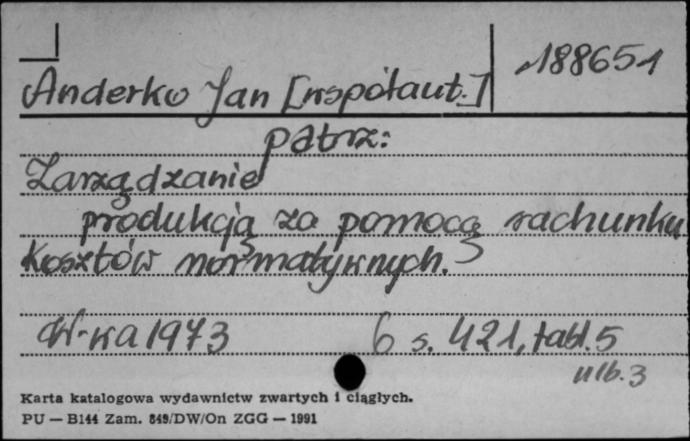 Anderko Jan [współaut.] 188651
patrz:
Zarządzanie
produkcją za pomocą rachunku
kosztów normatywnych.
W-wa 1973 6 s. 421, tabl. 5
nlb. 3
Karta katalogowa wydawnictw zwartych i ciągłych.
PU — B144 Zam. 848/DW/On ZGG — 1991